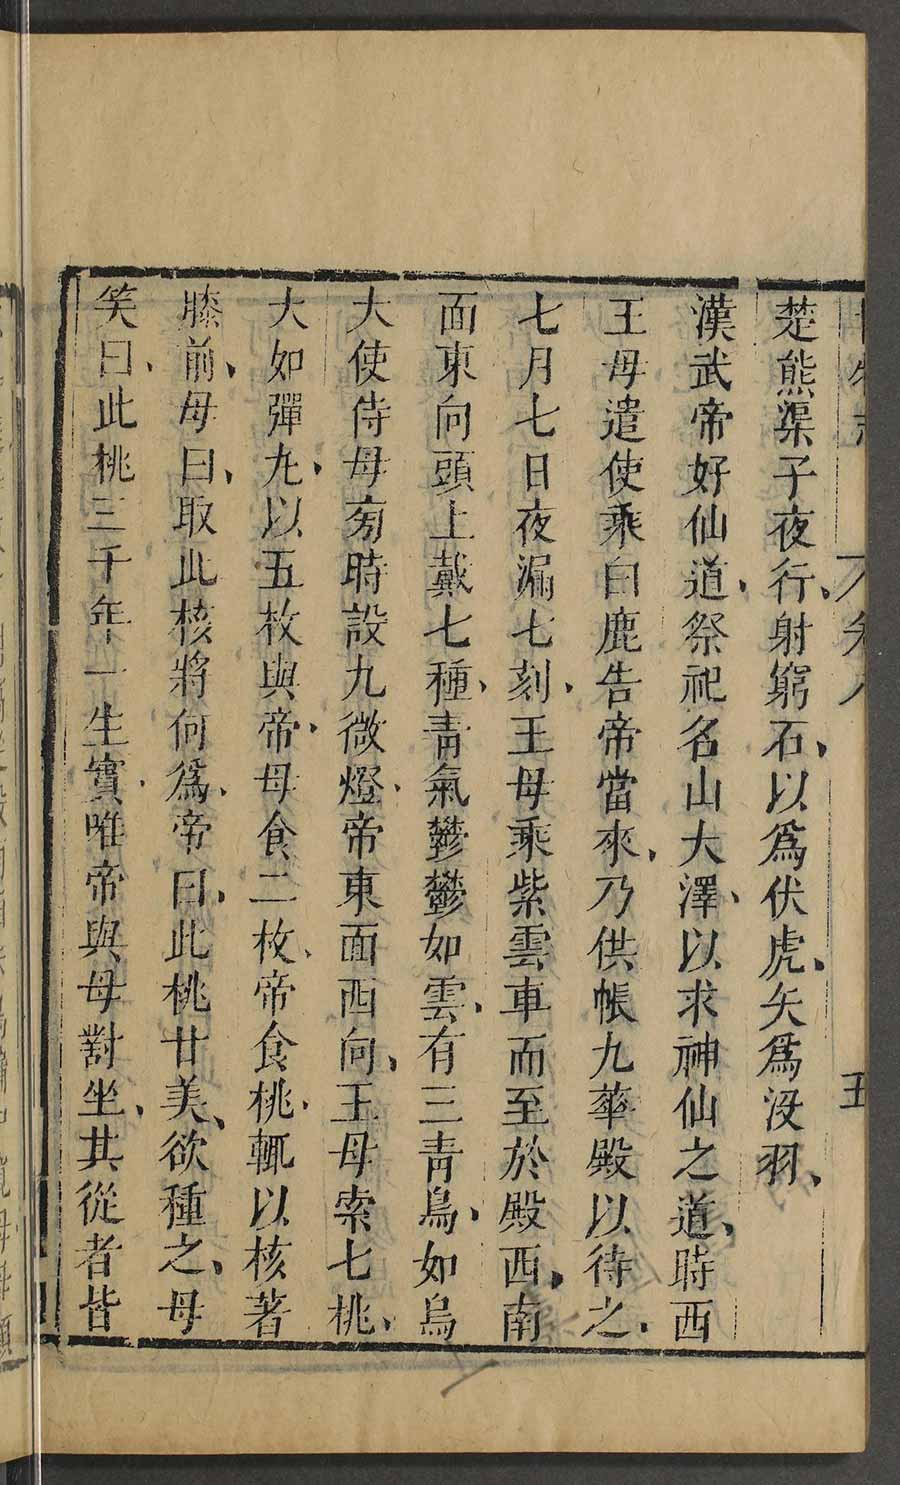 楚熊渠子夜行、射窮石、以爲伏虎、矢爲没羽、
漢武帝好仙道、祭祀名山大澤、以求神仙之道、時西
王母遣使乘白鹿告帝當來、乃供帳九華殿以待之、
七月七日夜漏七刻、王母乘紫雲車而至於殿西、南
面東向頭上戴七種、青氣鬱鬱如雲、有三青鳥、如烏
大使侍母㫄時設九微燈、帝東面西向、王母索七桃、
大如彈丸、以五枚與帝、母食二枚、帝食桃、輒以核著
膝前、母曰、取此核將何爲、帝曰、此桃甘美、欲種之、母
笑曰、此桃三千年一生實、唯帝與母對坐、其從者皆
卷八
五